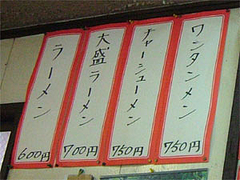 ワンタンメン 750円
チャーシューメン 750円
大盛ラーメン 700円
ラーメン 600円